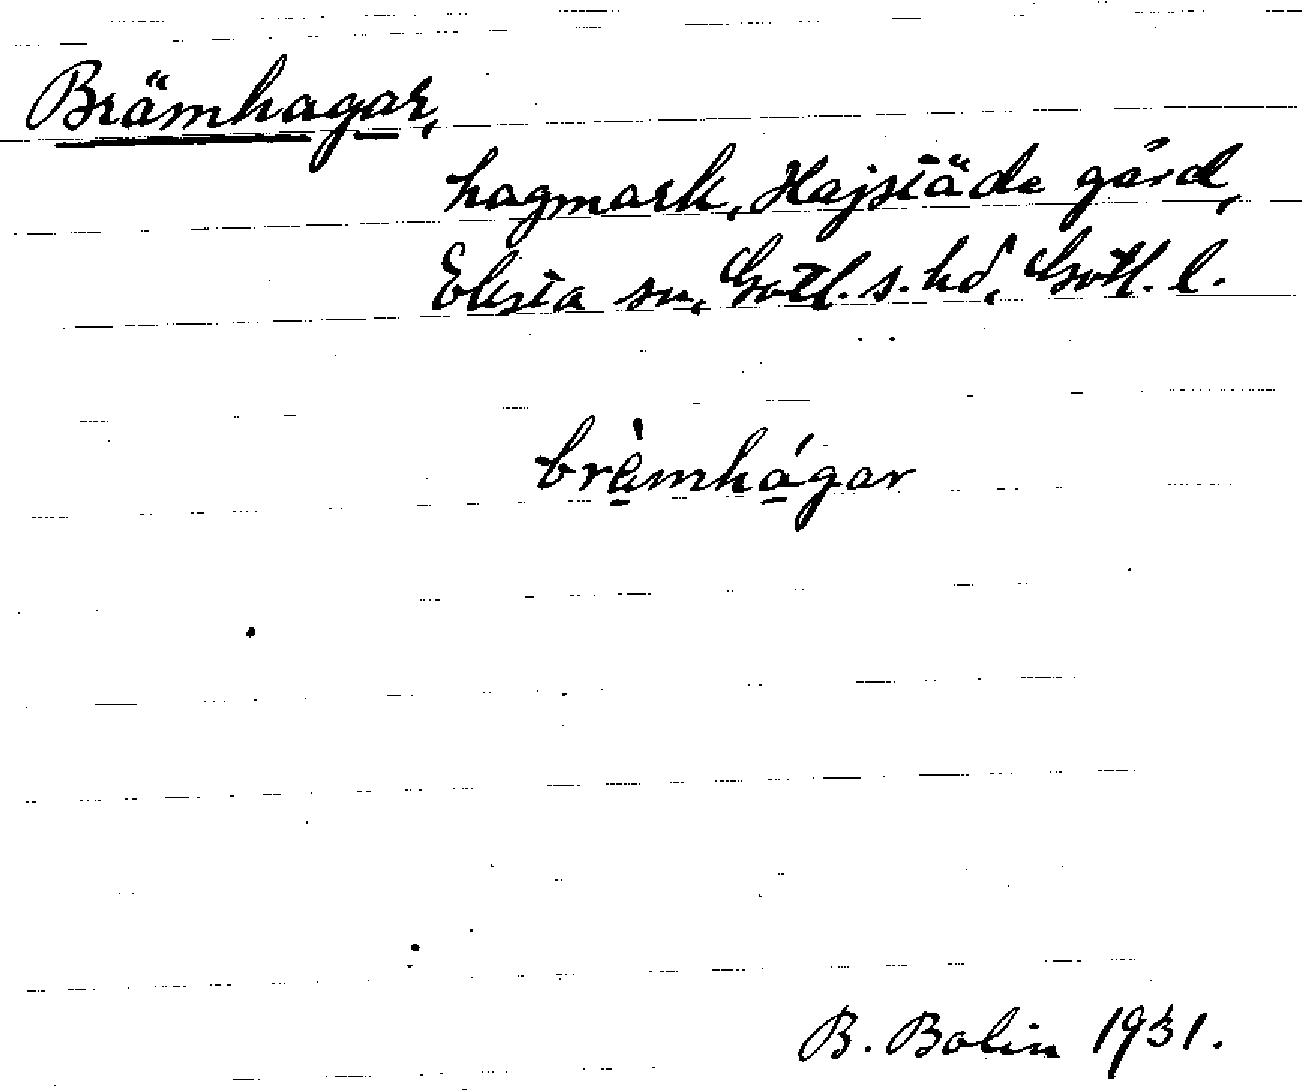 Brämhagar,
hagmark, Hajstäde gård,
Eksta sn, Gotl. s. hd, Gotl. l.
brèmhágar
B. Bolin 1931.